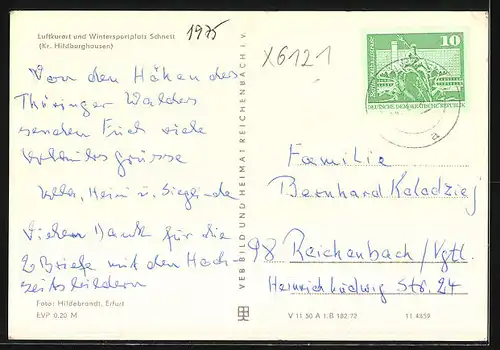 Luftkurort und Wintersportplatz Schnett
(Kr. Hildburghausen)
1975
X6121
Von den Höhen des
Thüringer Waldes
senden Euch viele
Urlaubsgrüsse
Heini u. Sieglinde
Vielen Dank für die
2 Briefe mit den Hoch-
zeitsbildern
Foto: Hildebrandt, Erfurt
EVP 0.20 M
VEB BILD UND HEIMAT REICHENBACH i. V.
10
DEUTSCHE DEMOKRATISCHE REPUBLIK
Familie
Bernhard Koladziej
98 Reichenbach/Vgtl.
Heinrich Ludwig Str. 24
V 11 50 A 1/B 182/72
11.4859